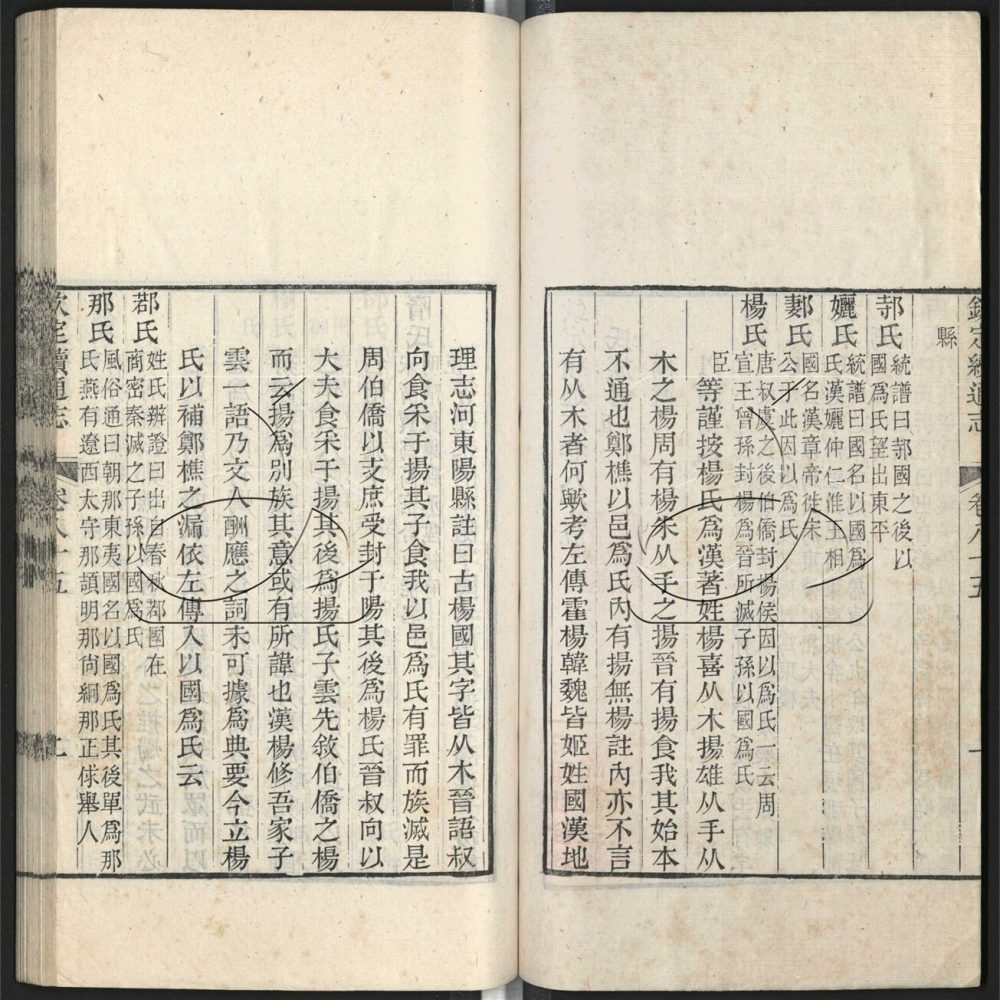 欽定續通志
卷八十五
縣
邿氏
統譜曰邿國之後以
國爲氏望出東平
孋氏
統譜曰國名以國爲
氏漢孋仲仁淮王相
鄤氏
國名漢章帝徙宋
公于此因以爲氏
楊氏
唐叔虞之後伯僑封揚侯因以爲氏一云周
宣王曾孫封楊爲晉所滅子孫以國爲氏
臣等謹按楊氏爲漢著姓楊喜从木揚雄从手从
木之楊周有楊朱从手之揚晉有揚食我其始本
不通也鄭樵以邑爲氏內有揚無楊註內亦不言
有从木者何歟考左傳霍楊韓魏皆姬姓國漢地
理志河東陽縣註曰古楊國其字皆从木晉語叔
向食采于揚其子食我以邑爲氏有罪而族滅是
周伯僑以支庶受封于陽其後爲楊氏晉叔向以
大夫食采于揚其後爲揚氏子雲先敘伯僑之楊
而云揚爲別族其意或有所諱也漢楊修吾家子
雲一語乃文人酬應之詞未可據爲典要今立楊
氏以補鄭樵之漏依左傳入以國爲氏云
鄀氏
姓氏辨證曰出自春秋鄀國在
商密秦滅之子孫以國爲氏
那氏
風俗通曰朝那東夷國名以國爲氏其後單爲那
氏燕有遼西太守那頡明那尙絅那正俅舉人
欽定續通志
卷八十五